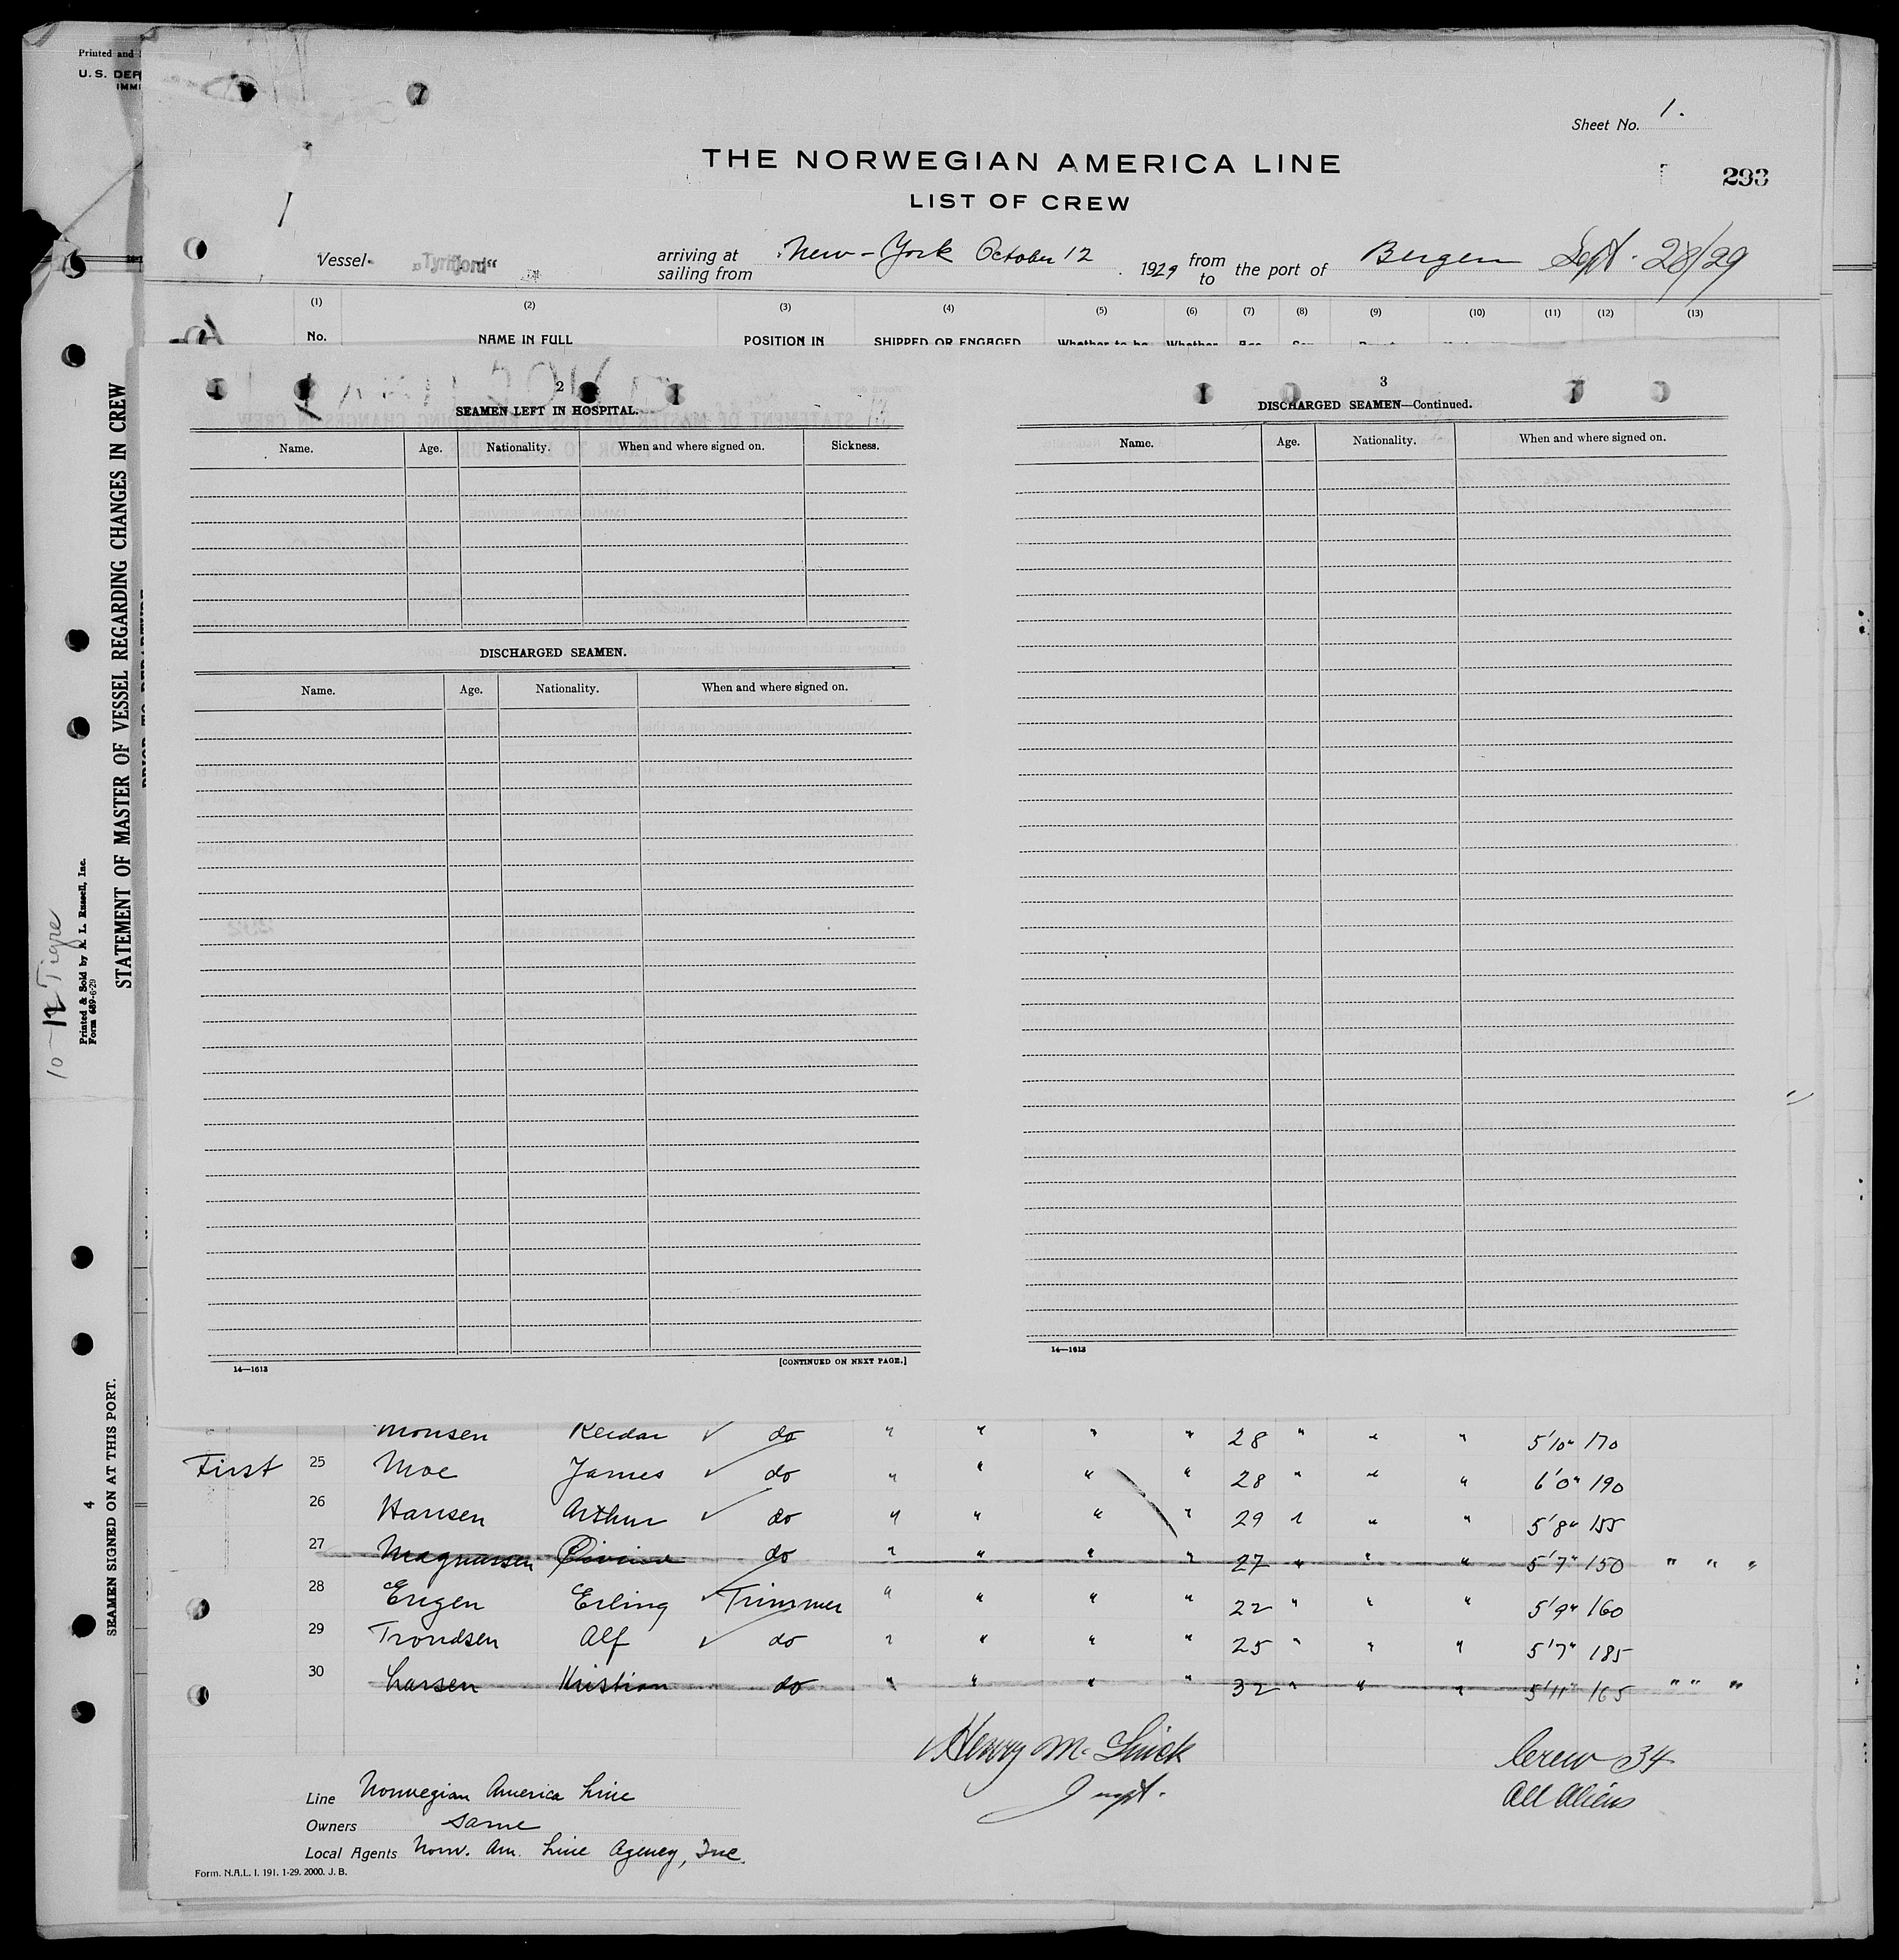 Printed and
U. S. DEP
IMMI
Sheet No. 1.
THE NORWEGIAN AMERICA LINE
293
LIST OF CREW
Vessel „Tyrifjord“ arriving at sailing from New-York October 12 1929 from to the port of Bergen Sept. 28/29
(1) (2) (3) (4) (5) (6) (7) (8) (9) (10) (11) (12) (13)
No. NAME IN FULL POSITION IN SHIPPED OR ENGAGED Whether to be Whether
2
SEAMEN LEFT IN HOSPITAL.
Name. Age. Nationality. When and where signed on. Sickness.
DISCHARGED SEAMEN.
Name. Age. Nationality. When and where signed on.
14—1613 [CONTINUED ON NEXT PAGE.]
3
DISCHARGED SEAMEN—Continued.
Name. Age. Nationality. When and where signed on.
14—1613
Monsen Reidar ✓ do " " " " 28 " " " 5'10" 170
First 25 Moe James ✓ do " " " " 28 " " " 6'0" 190
26 Hansen Arthur ✓ do " " " " 29 " " " 5'8" 155
27 Magnussen do " " " " 27 " " " 5'7" 150 " " "
28 Engen Erling ✓ Trimmer " " " " 22 " " " 5'9" 160
29 Trondsen Alf ✓ do " " " " 25 " " " 5'7" 185
30 Larsen Kristian do " " " " 32 " " " 5'11" 165 " " "
Henry M.
Inspt.
Crew 34
All Aliens
Line Norwegian America Line
Owners Same
Local Agents Norw. Am. Line Agency, Inc.
Form. N.A.L. I. 191. 1-29. 2000. J. B.
STATEMENT OF MASTER OF VESSEL REGARDING CHANGES IN CREW
PRIOR TO DEPARTURE
Printed & Sold by R. L. Russell, Inc.
Form 689-6-29
10-12 Tigre
4
SEAMEN SIGNED ON AT THIS PORT.